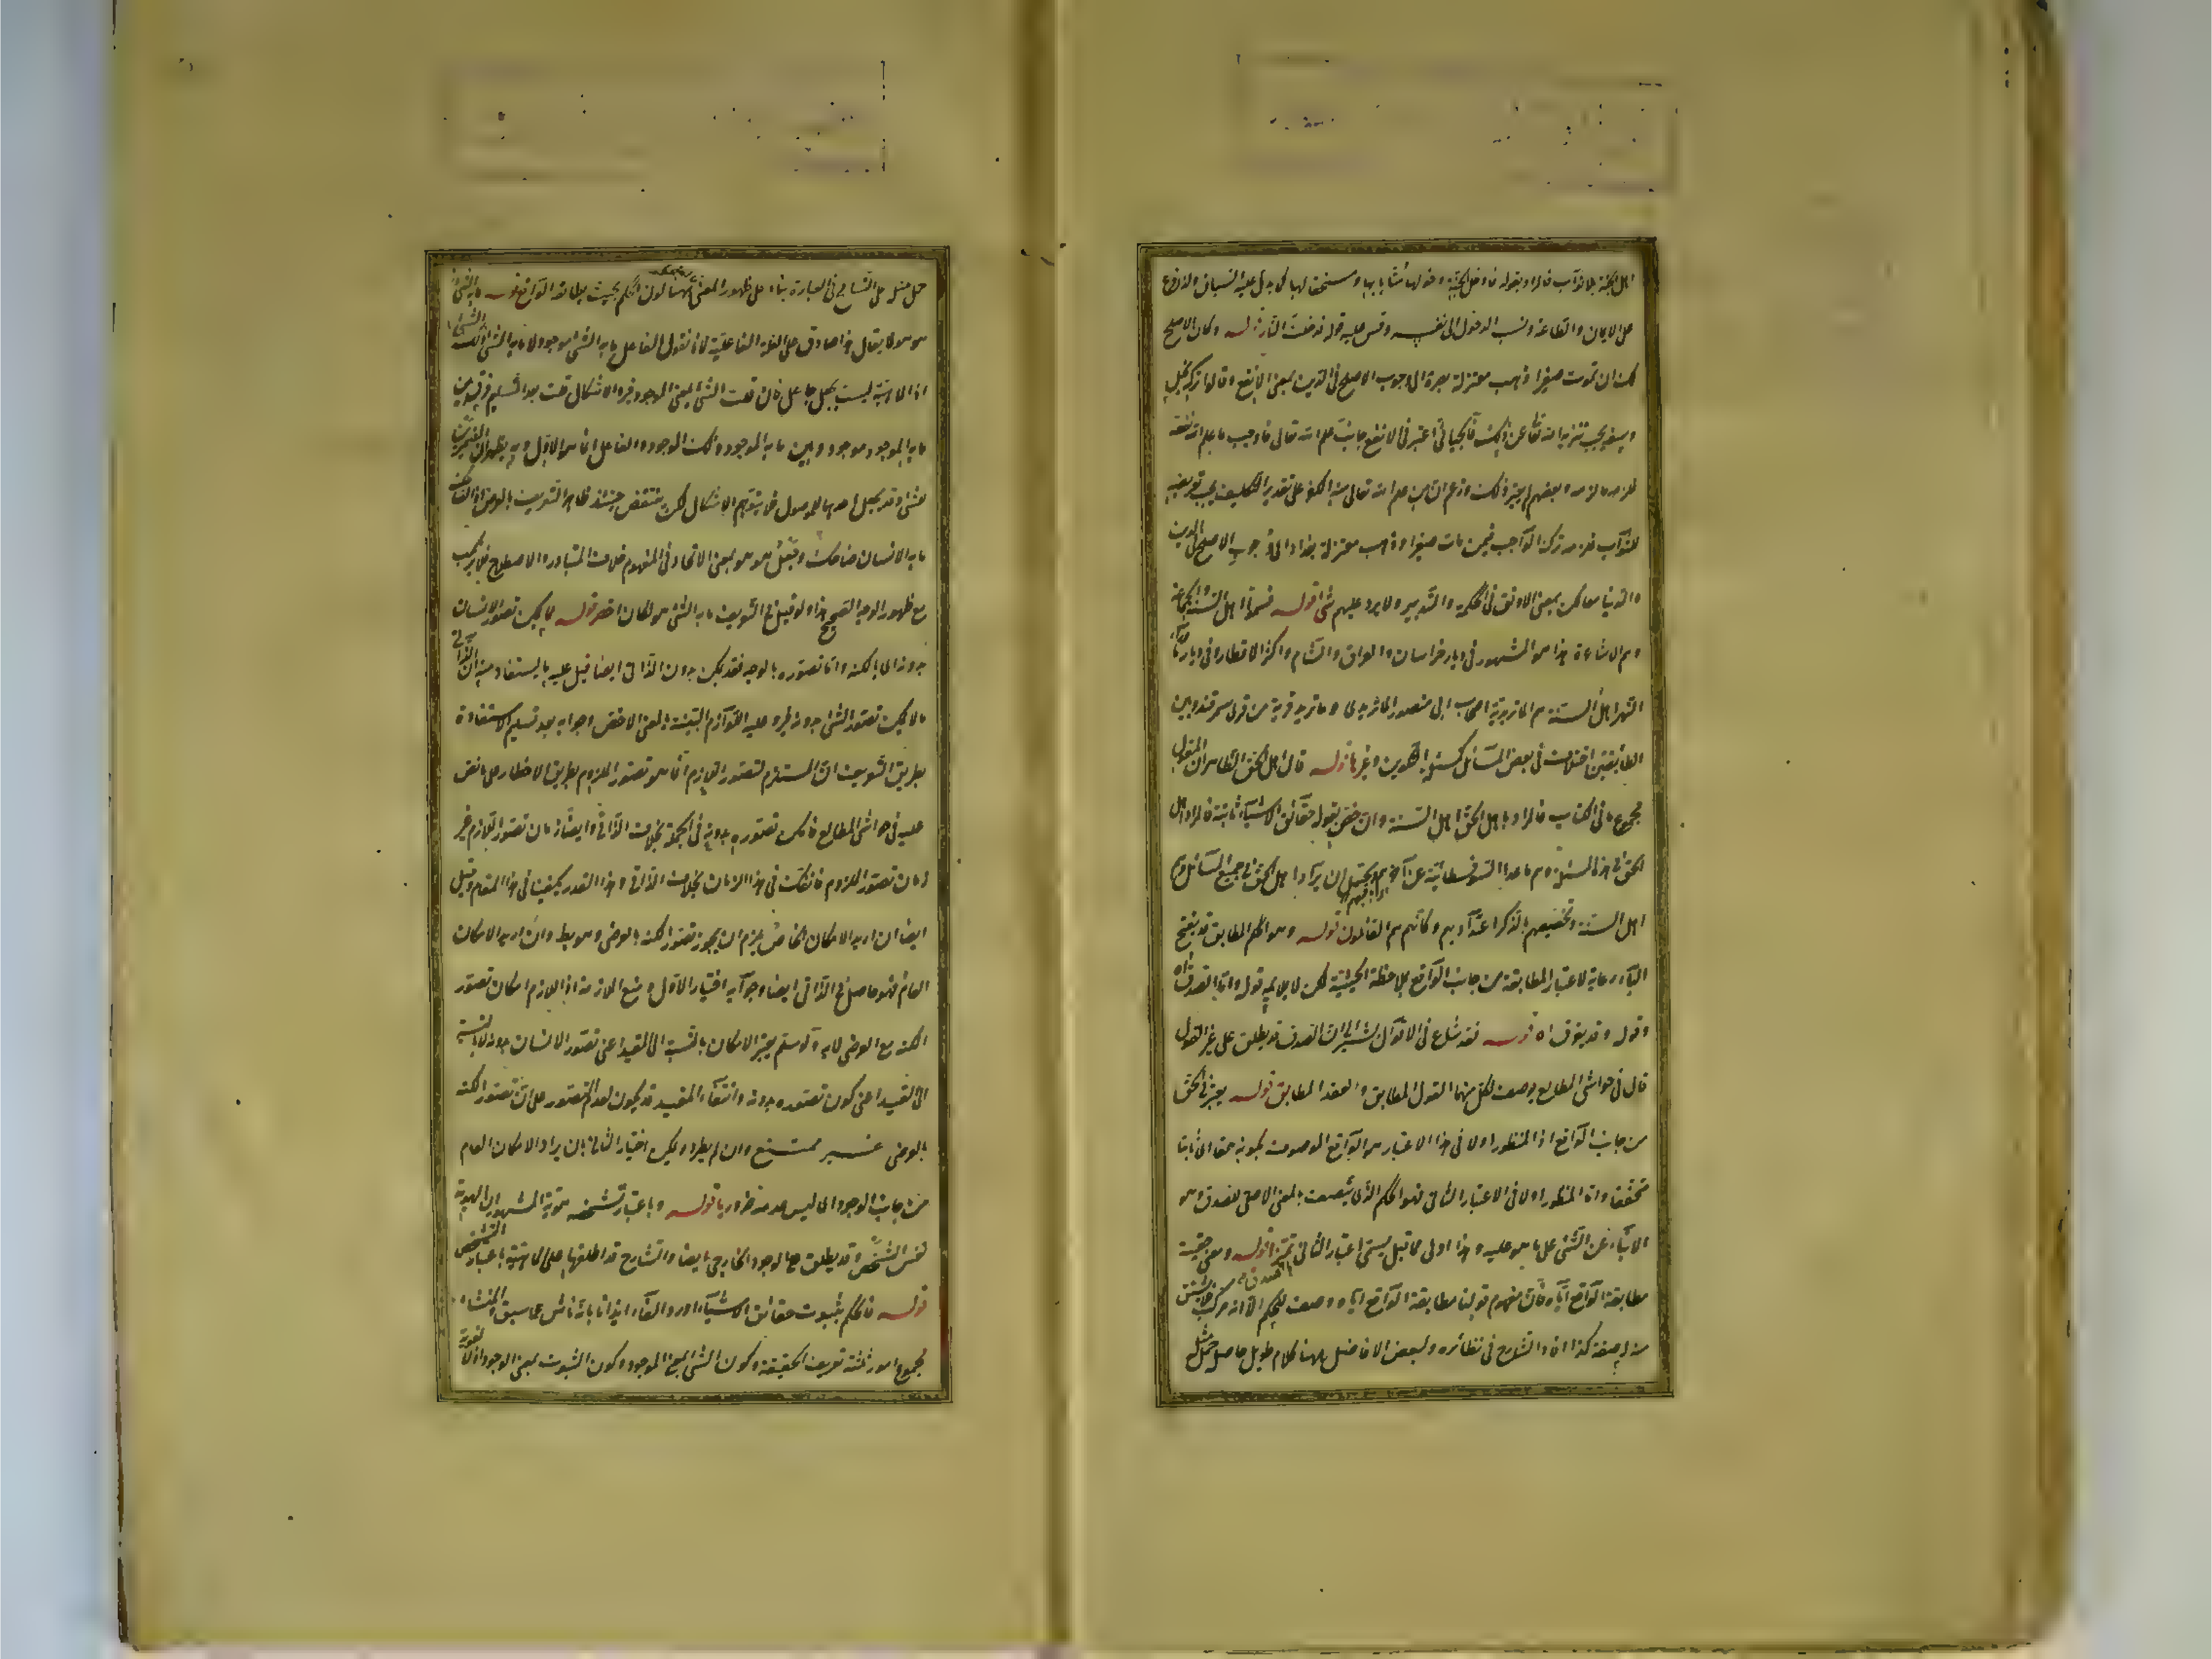 اهل الجنة بلا ثواب فالمراد بقوله فادخل الجنة دخولها مثابا بها ومستحقا لها كما يدل عليه السياق والتفريع
على الايمان والطاعة ونسب الدخول الى نفسه وقس عليه قوله فدخلت النار قوله وكان الاصلح
لك ان تموت صغيرا ذهب معتزلة بصرة الى وجوب الاصلح في الدين بمعنى الانفع وقالوا تركه بخل
وسفه يجب تنزيه الله تعالى عن ذلك فالجبائي اعتبر في الانفع جانب علم الله تعالى فاوجب ما علم الله نفعه
فلزمه ما لزمه وبعضهم لم يعتبر ذلك وزعم ان من علم الله تعالى منه الكفر على تقدير التكليف يجب تعريضه
للثواب فلزمه ترك الواجب فيمن مات صغيرا وذهب معتزلة بغداد الى وجوب الاصلح في الدين
والدنيا معا لكن بمعنى الاوفق في الحكمة والتدبير ولا يرد عليهم شئ قوله فسموا اهل السنة والجماعة
وهم الاشاعرة هذا هو المشهور في ديار خراسان والعراق والشام واكثر الاقطار وفي ديار ما وراء
النهر اهل السنة هم الماتريدية اصحاب ابي منصور الماتريدي وماتريد قرية من قرى سمرقند وبين
الطائفتين اختلاف في بعض المسائل كمسئلة التكوين وغيرها قوله قال اهل الحق الظاهر ان المقول
مجموع ما في الكتاب فالمراد باهل الحق اهل السنة وان خص بقوله حقائق الاشياء ثابتة فالمراد اهل
الحق في هذه المسئلة وهم ما عدا السوفسطائية عن آخرهم ويحتمل ان يراد اهل الحق في جميع المسائل وهم
اهل السنة وتخصيصهم بالذكر اعتدادا بهم وكأنهم هم القائلون قوله وهو الحكم المطابق قد يفتح
الباء رعاية لاعتبار المطابقة من جانب الواقع بملاحظة الحيثية لكن لا يلائمه قوله واما الصدق اه
وقوله وقد يفرق اه قوله فقد شاع في الاقوال يشير الى ان الصدق قد يطلق على غير القول
قال في حواشي المطالع يوصف بكل منهما القول المطابق والعقد المطابق قوله يعتبر في الحق
من جانب الواقع اذ المنظور اولا في هذا الاعتبار هو الواقع الموصوف بكونه حقا اي ثابتا
متحققا واما المنظور اولا في الاعتبار الثاني فهو الحكم الذي يتصف بالمعنى الاصلي للصدق وهو
الانباء عن الشئ على ما هو عليه وهذا اولى مما قيل يسمى اعتبار الثاني بالصدق تميزا قوله ومعنى حقيته
مطابقة الواقع اياه فان مفهوم قولنا مطابقة الواقع اياه وصف للحكم الا انه مركب فلا يشتق
منه له صفة كذا افاد الشارح في نظائره ولبعض الافاضل ههنا كلام طويل حاصله
حمل مثله على التسامح في العبارة بناء على ظهور المعنى ههنا كون الحكم بحيث يطابقه الواقع قوله ما به الشئ
هو هو لا يقال هذا صادق على العلة الفاعلية لانا نقول الفاعل ما به الشئ موجود لا ما به الشئ ذلك الشئ
اذ الماهية ليست بجعل جاعل فان قلت الشئ بمعنى الموجود فيرد الاشكال قلت بعد التسليم فرق بين
ما به الموجود موجود وبين ما به الموجود ذلك الموجود والفاعل انما هو الاول وبه يظهر ان الضميرين
للشئ وقد يجعل احدهما للموصول فلا يتوهم الاشكال لكن ينتقض حينئذ ظاهر التعريف بالعرضي اذ الضاحك
ما به الانسان ضاحك وقيل هو هو بمعنى الاتحاد في المفهوم خلاف المتبادر والاصطلاح فلا يرتكب
مع ظهور الوجه الصحيح هذا ولو قيل في التعريف ما به الشئ هو لكان اخصر قوله مما يمكن تصور الانسان
بدونه اي بالكنه واما تصوره بالوجه فقد يمكن بدون الذاتي ايضا قيل عليه يستفاد منه ان الذاتي
ما لا يمكن تصور الشئ بدونه فيرد عليه اللوازم البينة بالمعنى الاخص وجوابه بعد تسليم الاستفادة
بطريق التعريف ان المستلزم لتصور اللازم انما هو تصور الملزوم بطريق الاخطار على ما نص
عليه في حواشي المطالع فامكن تصوره بدونه في الجملة بخلاف الذاتي وايضا زمان تصور اللازم غير
زمان تصور الملزوم فانفك في هذا الزمان بخلاف الذاتي وهذا القدر يكفينا في هذا المقام وقيل
ايضا ان اريد الامكان الخاص يلزم ان يجوز تصور الكنه بالعرضي وهو بط وان اريد الامكان
العام فهو حاصل في الذاتي ايضا وجوابه اختيار الاول ومنع الملازمة اذ اللازم امكان تصور
الكنه مع العرضي لا به ولو سلم يعتبر الامكان بالنسبة الى المقيد اعني تصور الانسان بدونه لا بالنسبة
الى القيد اعني كون تصوره بدونه وانتفاء المقيد قد يكون لعدم التصور على ان تصور الكنه
بالعرضي غير ممتنع وان لم يطرد ويمكن اختيار الثاني بان يراد الامكان العام
من جانب الوجود اي ليس عدمه ضروريا قوله وباعتبار تشخصه هوية المشهور ان الهوية
نفس التشخص وقد يطلق على الوجود الخارجي ايضا والشارح قد اطلقها على الماهية باعتبار التشخص
قوله فالحكم بثبوت حقائق الاشياء اورد الفاء ايذانا بانه ناش عما سبق والمنشاء
مجموع امور ثلثة تعريف الحقيقة وكون الشئ بمعنى الموجود وكون الثبوت بمعنى الوجود اذ لا لغوية